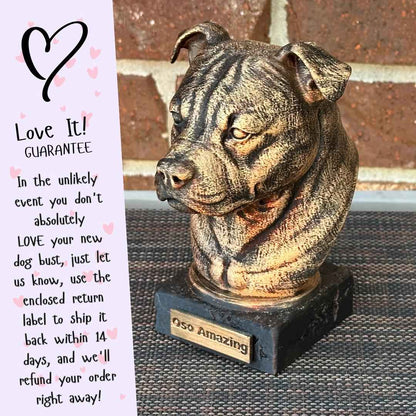 Love It!
GUARANTEE
In the unlikely
event you don't
absolutely
LOVE your new
dog bust, just let
us know, use the
enclosed return
label to ship it
back within 14
days, and we'll
refund your order
right away!
Oso Amazing